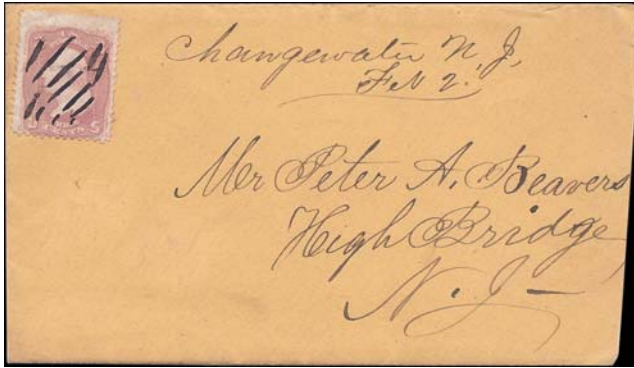 Changewater N. J,
Feb 2.
Mr Peter A. Beavers
High Bridge,
N. J —